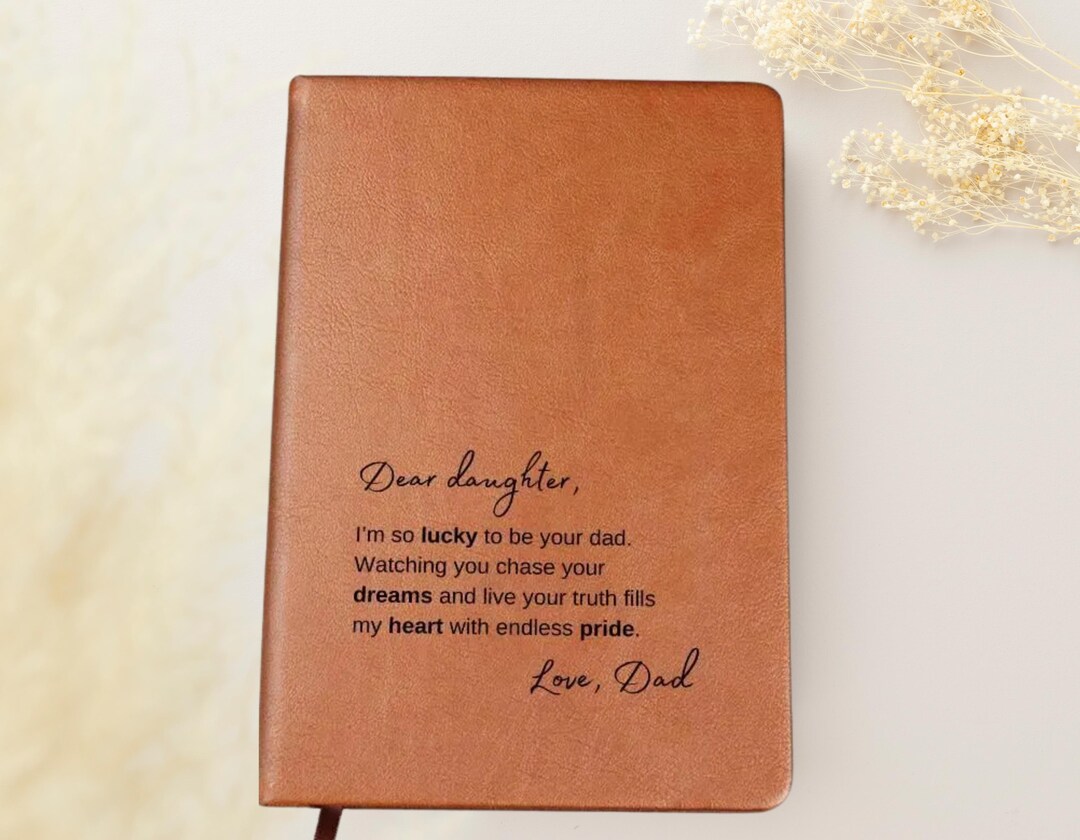 Dear daughter,
I'm so lucky to be your dad.
Watching you chase your
dreams and live your truth fills
my heart with endless pride.
Love, Dad